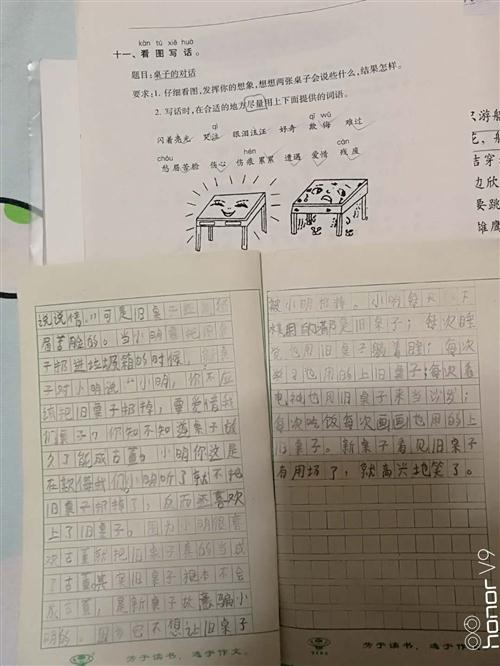 kàn tú xiě huà
十一、看图写话。
题目:桌子的对话
要求:1. 仔细看图,发挥你的想象,想想两张桌子会说些什么,结果怎样。
2. 写话时,在合适的地方尽量用上下面提供的词语。
qì qī wǔ
闪着亮光 哭泣 眼泪汪汪 好奇 欺侮 难过
chóu hén cán
愁眉苦脸 伤心 伤痕累累 遭遇 爱惜 残废
游船
吉穿
边欣
要跳
雄鹰
说说情。"可是旧桌子
眉苦脸的。当小明要把旧桌
子扔进垃圾箱的时候,
子对小明说"小明,你不应
该把旧桌子扔掉,要爱惜我
们桌子,你知不知道桌子放
久了能成古董。小明你这是
在欺侮我们。小明听了就不把
旧桌子扔掉了,反而还喜欢
上了旧桌子。因为小明很喜
欢古董就把旧桌子真的当成
了古董。其实旧桌子根本不会
成古董,是新桌子故意骗小
明的。因为它不想让旧桌子
被小明扔掉。小明每天
用的都是旧桌子;每次睡
觉也用旧桌子躺着睡;每次
也用的上旧桌子;每次看
电视也用旧桌子来当沙发;
每次吃饭每次画画也用的上
旧桌子。新桌子看见旧桌子
有用场了,就高兴地笑了。
芳于读书,逸于作文。
芳于读书,逸于作文。
honor V9